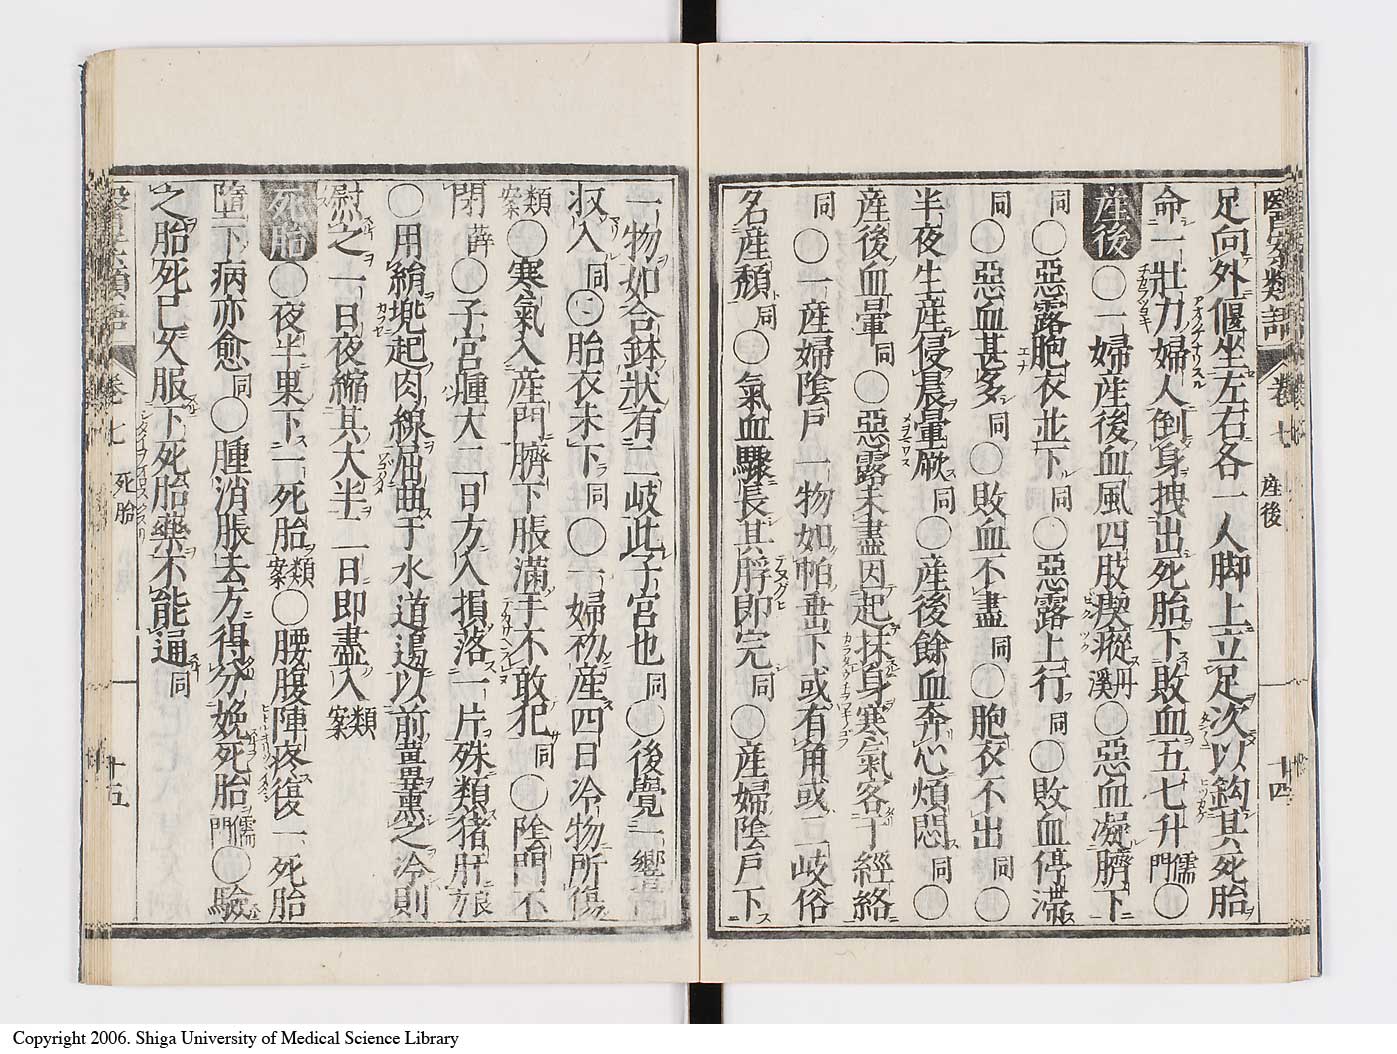 醫案類語 卷七 産後 十四
足向外偃坐左右各一人脚上立足次以鈎其死胎
命一壯力婦人倒身拽出死胎下敗血五七升儒門〇
産後〇一婦産後血風四肢瘈瘲丹溪〇惡血凝臍下
同〇惡露胞衣並下同〇惡露上行同〇敗血停滞
同〇惡血甚多同〇敗血不盡同〇胞衣不出同〇
半夜生産侵晨暈厥同〇産後餘血奔心煩悶同〇
産後血暈同〇惡露未盡因起抹身寒氣客于經絡
同〇一産婦陰戸一物如帕垂下或有角或二岐俗
名産頽同〇氣血驟長其脬即完同〇産婦陰戸下
一物如合鉢狀有二岐此子宮也同〇後覺一響
収入同〇胎衣未下同〇一婦初産四日冷物所傷
類案〇寒氣入産門臍下脹滿手不敢犯同〇陰門不
閉薛〇子宮腫大二日方入損落一片殊類猪肝
〇用綃兠起肉線屈曲于水道邊以前薑熏之冷則
熨之一日夜縮其大半二日即盡入類案
死胎〇夜半果下一死胎類案〇腰腹陣疼復一死胎
墮下病亦愈同〇腫消脹去方得分娩死胎儒門〇驗
之胎死已久服下死胎藥不能通同
卷七 死胎 十五
Copyright 2006. Shiga University of Medical Science Library